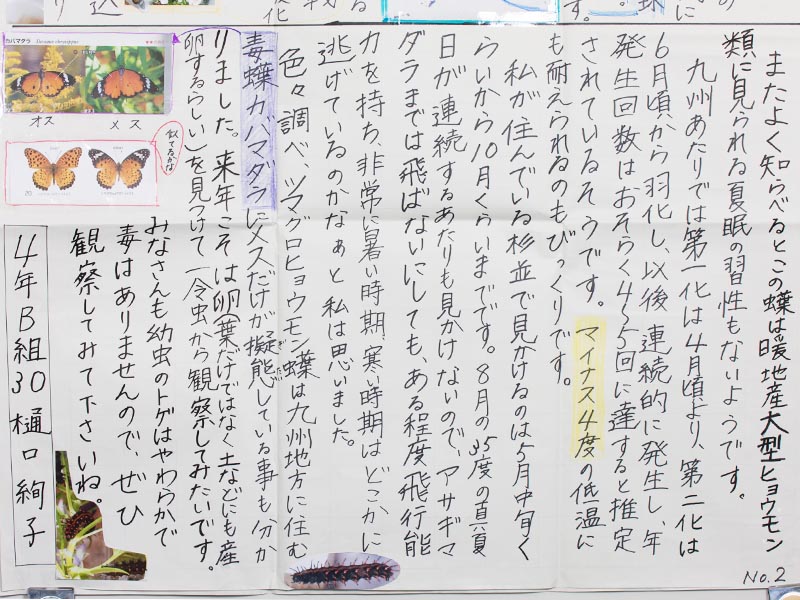 またよく知らべるとこの蝶は暖地産大型ヒョウモン
類に見られる夏眠の習性もないようです。
九州あたりでは第一化は4月頃より、第二化は
6月頃から羽化し、以後 連続的に発生し、年
発生回数はおそらく4~5回に達すると推定
されているそうです。マイナス4度の低温に
も耐えられるのもびっくりです。
私が住んでいる杉並で見かけるのは5月中旬く
らいから10月くらいまでです。8月の35度の真夏
日が連続するあたりも見かけないので、アサギマ
ダラまでは飛ばないにしても、ある程度飛行能
力を持ち、非常に暑い時期、寒い時期はどこかに
逃げているのかなぁと私は思いました。
色々調べ、ツマグロヒョウモン蝶は九州地方に住む
毒蝶カバマダラにメスだけが擬態している事も分か
りました。来年こそは卵(葉だけではなく土などにも産
卵するらしい)を見つけて一令虫から観察してみたいです。
みなさんも幼虫のトゲはやわらかで
毒はありませんので、ぜひ
観察してみて下さいね。
カバマダラ Danaus chrysippus
オス メス
似てるかな
4年B組30 樋口絢子
No.2